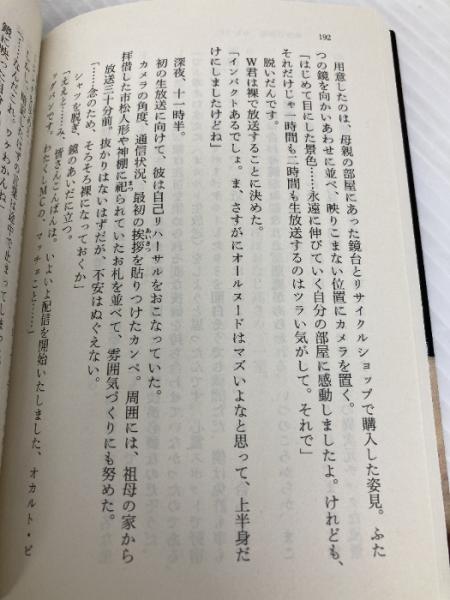 192
用意したのは、母親の部屋にあった鏡台とリサイクルショップで購入した姿見。ふた
つの鏡を向かいあわせに並べ、映りこまない位置にカメラを置く。
「はじめて目にした景色……永遠に伸びていく自分の部屋に感動しましたよ。けれども、
それだけじゃ一時間も二時間も生放送するのはツラい気がして。それで」
脱いだんです。
W君は裸で放送することに決めた。
「インパクトあるでしょ。ま、さすがにオールヌードはマズいよなと思って、上半身だ
けにしましたけどね」
深夜、十一時半。
初の生放送に向けて、彼は自己リハーサルをおこなっていた。
カメラの角度、通信状況、最初の挨拶を貼りつけたカンペ。周囲には、祖母の家から
拝借した市松人形や神棚に祀られていたお札を並べて、雰囲気づくりにも努めた。
放送三十分前。抜かりはないはずだが、不安はぬぐえない。
「……念のため、そろそろ裸になっておくか」
シャツを脱ぎ、鏡のあいだに立つ。
「ええと……み、皆さんこんばんは。いよいよ配信を開始いたしました、オカルト・ビ
ッグメンです。わたくしMCの、マッチョこと……」